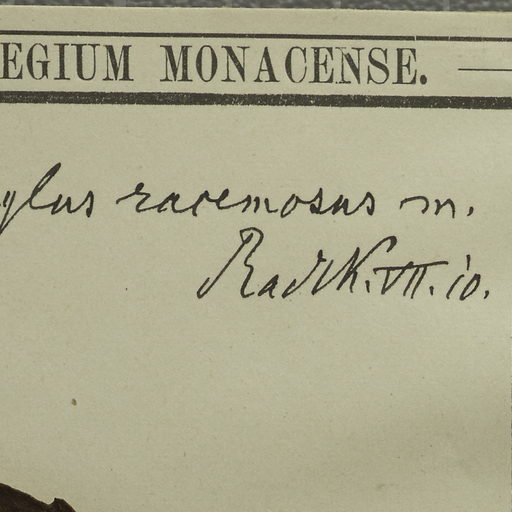 EGIUM MONACENSE.
ylus racemosus m.
Radlk. VII. 10.